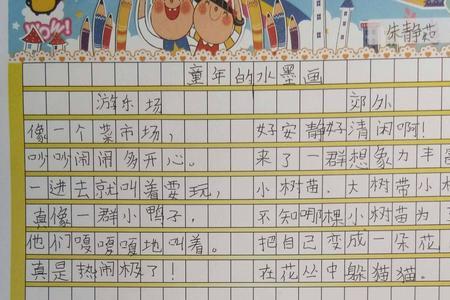 朱静茹
童年的水墨画
游乐场
像一个菜市场，
吵吵闹闹多开心。
一进去就叫着要玩，
真像一群小鸭子，
他们嘎嘎嘎地叫着。
真是热闹极了！
郊外
好安静好清闲啊！
来了一群想象力丰富
小树苗，大树带小
不知哪棵小树苗为
把自己变成一朵花
在花丛中躲猫猫。